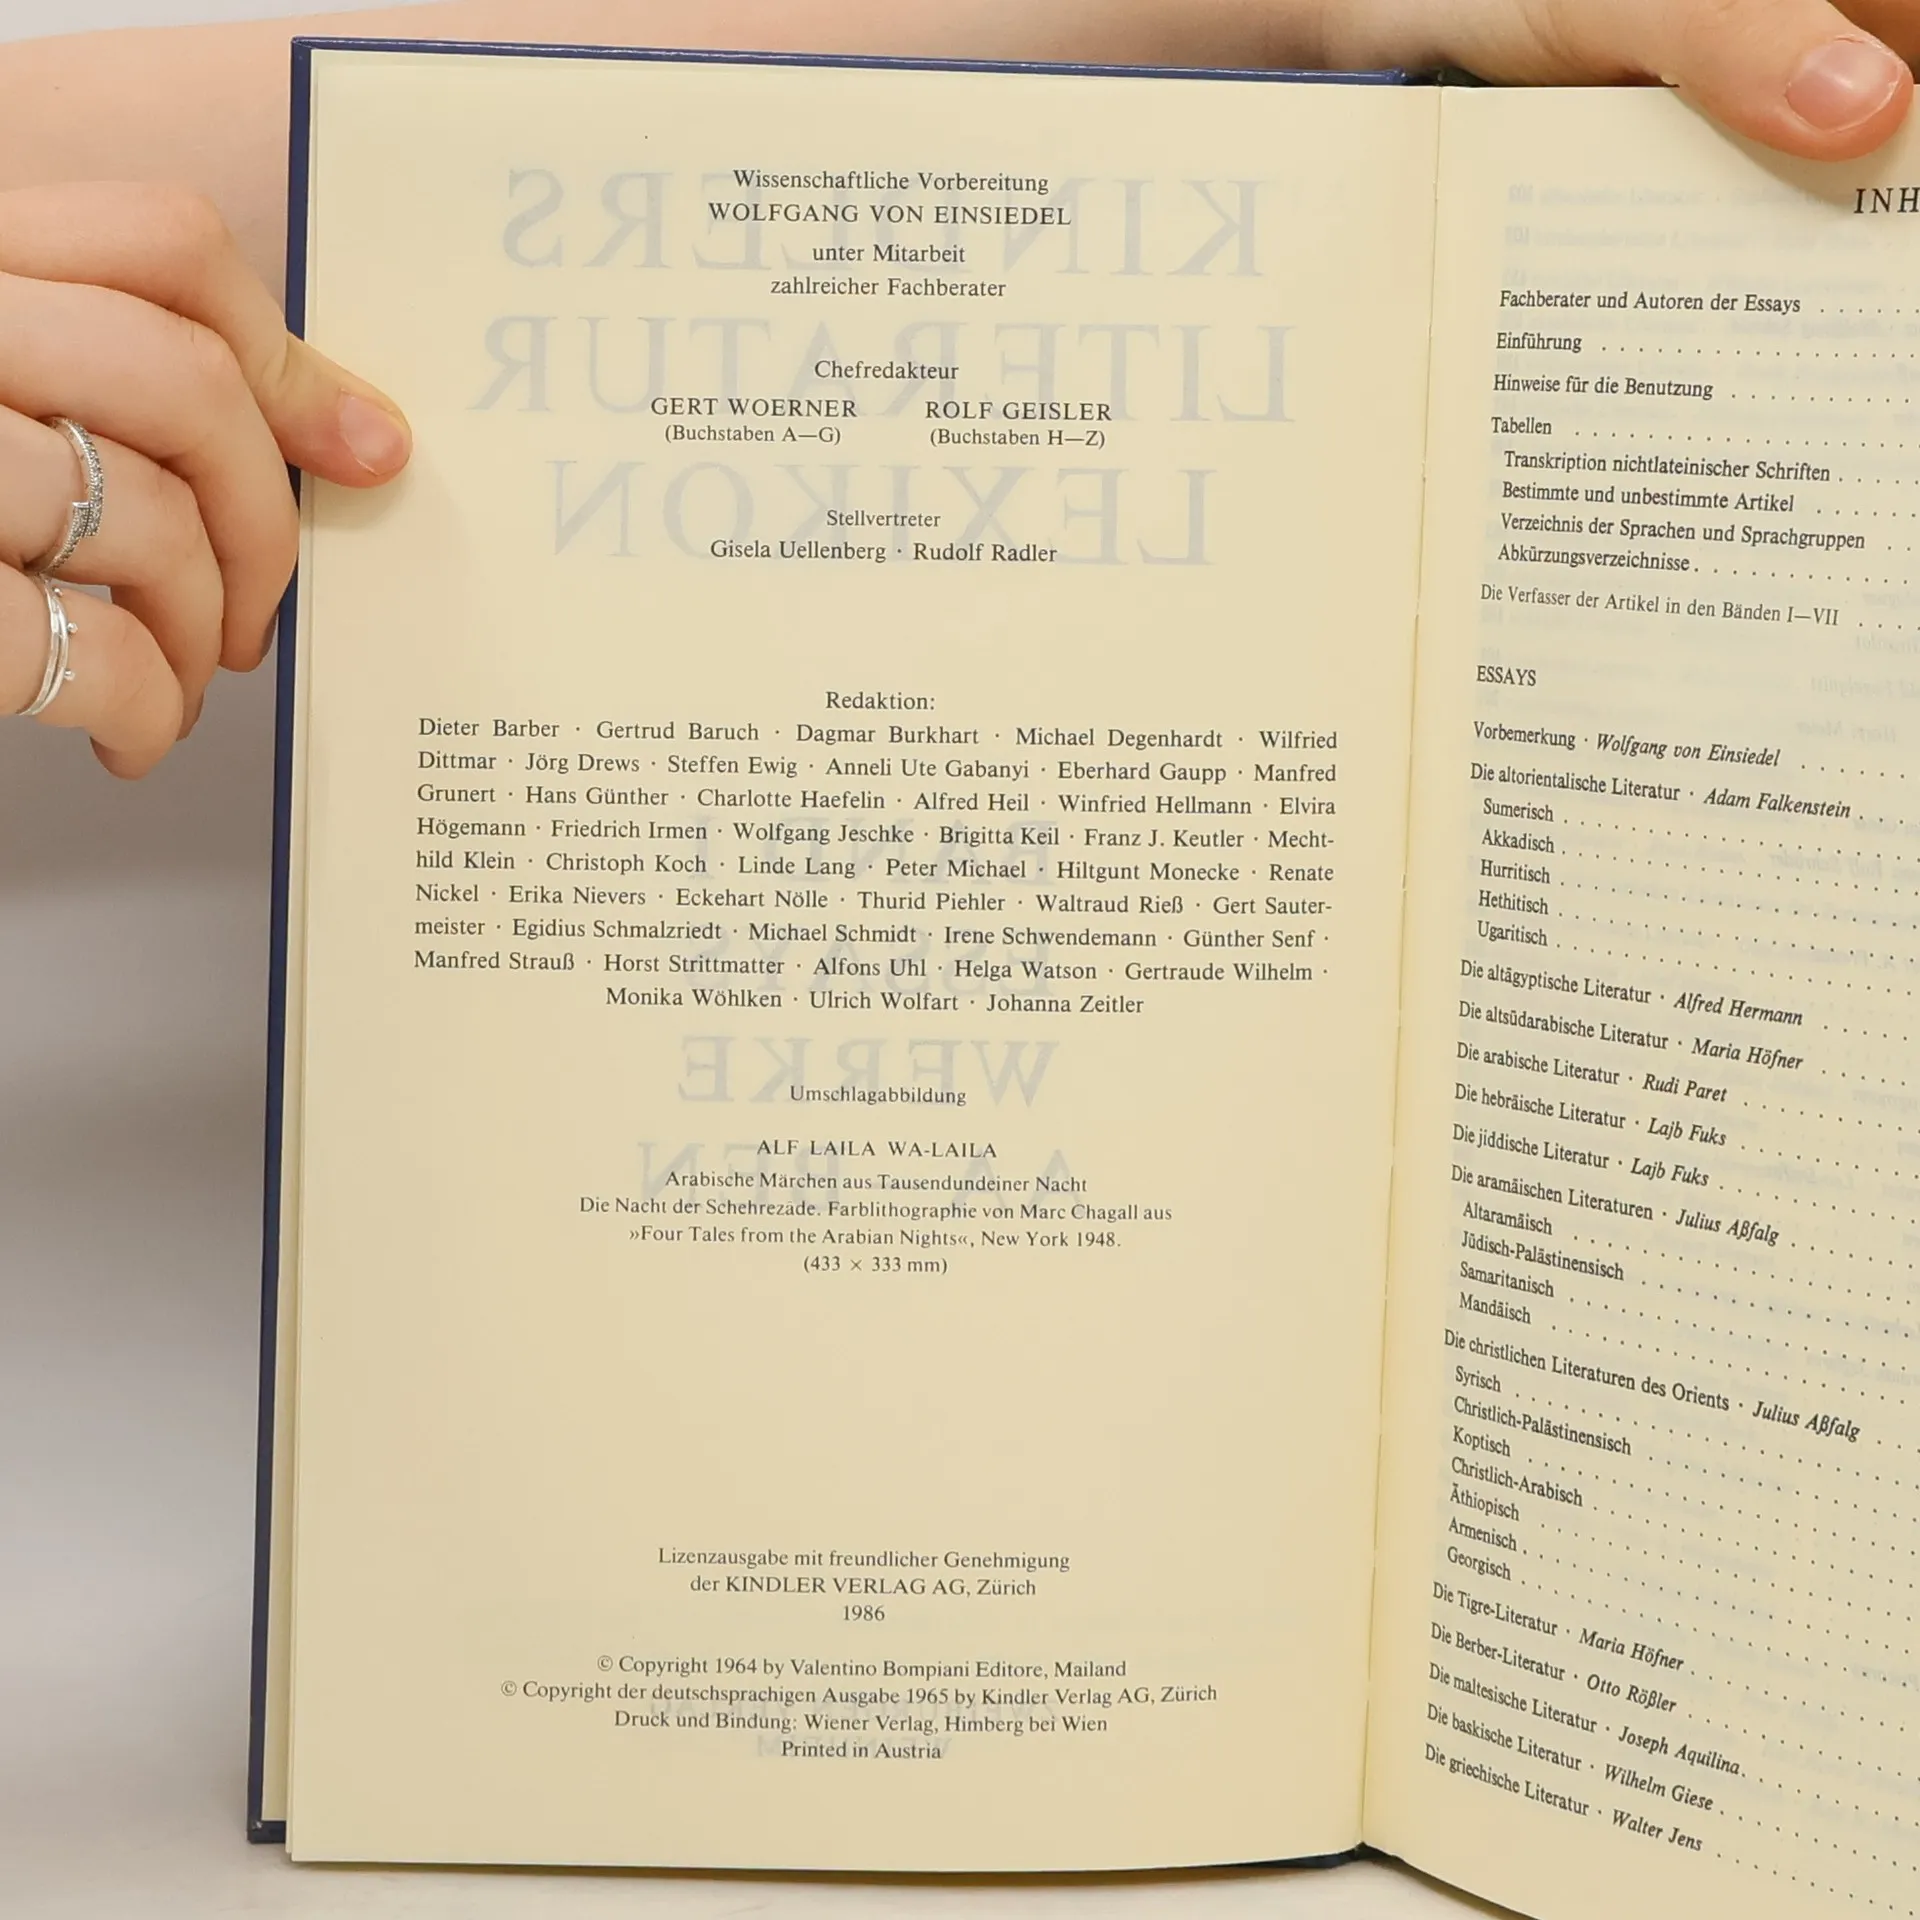 Wissenschaftliche Vorbereitung
WOLFGANG VON EINSIEDEL
unter Mitarbeit
zahlreicher Fachberater
Chefredakteur
GERT WOERNER ROLF GEISLER
(Buchstaben A—G) (Buchstaben H—Z)
Stellvertreter
Gisela Uellenberg · Rudolf Radler
Redaktion:
Dieter Barber · Gertrud Baruch · Dagmar Burkhart · Michael Degenhardt · Wilfried
Dittmar · Jörg Drews · Steffen Ewig · Anneli Ute Gabanyi · Eberhard Gaupp · Manfred
Grunert · Hans Günther · Charlotte Haefelin · Alfred Heil · Winfried Hellmann · Elvira
Högemann · Friedrich Irmen · Wolfgang Jeschke · Brigitta Keil · Franz J. Keutler · Mecht-
hild Klein · Christoph Koch · Linde Lang · Peter Michael · Hiltgunt Monecke · Renate
Nickel · Erika Nievers · Eckehart Nölle · Thurid Piehler · Waltraud Rieß · Gert Sauter-
meister · Egidius Schmalzriedt · Michael Schmidt · Irene Schwendemann · Günther Senf ·
Manfred Strauß · Horst Strittmatter · Alfons Uhl · Helga Watson · Gertraude Wilhelm ·
Monika Wöhlken · Ulrich Wolfart · Johanna Zeitler
Umschlagabbildung
ALF LAILA WA-LAILA
Arabische Märchen aus Tausendundeiner Nacht
Die Nacht der Schehrezâde. Farblithographie von Marc Chagall aus
»Four Tales from the Arabian Nights«, New York 1948.
(433 × 333 mm)
Lizenzausgabe mit freundlicher Genehmigung
der KINDLER VERLAG AG, Zürich
1986
© Copyright 1964 by Valentino Bompiani Editore, Mailand
© Copyright der deutschsprachigen Ausgabe 1965 by Kindler Verlag AG, Zürich
Druck und Bindung: Wiener Verlag, Himberg bei Wien
Printed in Austria
INH
Fachberater und Autoren der Essays
Einführung
Hinweise für die Benutzung
Tabellen
Transkription nichtlateinischer Schriften
Bestimmte und unbestimmte Artikel
Verzeichnis der Sprachen und Sprachgruppen
Abkürzungsverzeichnisse
Die Verfasser der Artikel in den Bänden I—VII
ESSAYS
Vorbemerkung · Wolfgang von Einsiedel
Die altorientalische Literatur · Adam Falkenstein
Sumerisch
Akkadisch
Hurritisch
Hethitisch
Ugaritisch
Die altägyptische Literatur · Alfred Hermann
Die altsüdarabische Literatur · Maria Höfner
Die arabische Literatur · Rudi Paret
Die hebräische Literatur · Lajb Fuks
Die jiddische Literatur · Lajb Fuks
Die aramäischen Literaturen · Julius Aßfalg
Altaramäisch
Jüdisch-Palästinensisch
Samaritanisch
Mandäisch
Die christlichen Literaturen des Orients · Julius Aßfalg
Syrisch
Christlich-Palästinensisch
Koptisch
Christlich-Arabisch
Äthiopisch
Armenisch
Georgisch
Die Tigre-Literatur · Maria Höfner
Die Berber-Literatur · Otto Rößler
Die maltesische Literatur · Joseph Aquilina
Die baskische Literatur · Wilhelm Giese
Die griechische Literatur · Walter Jens